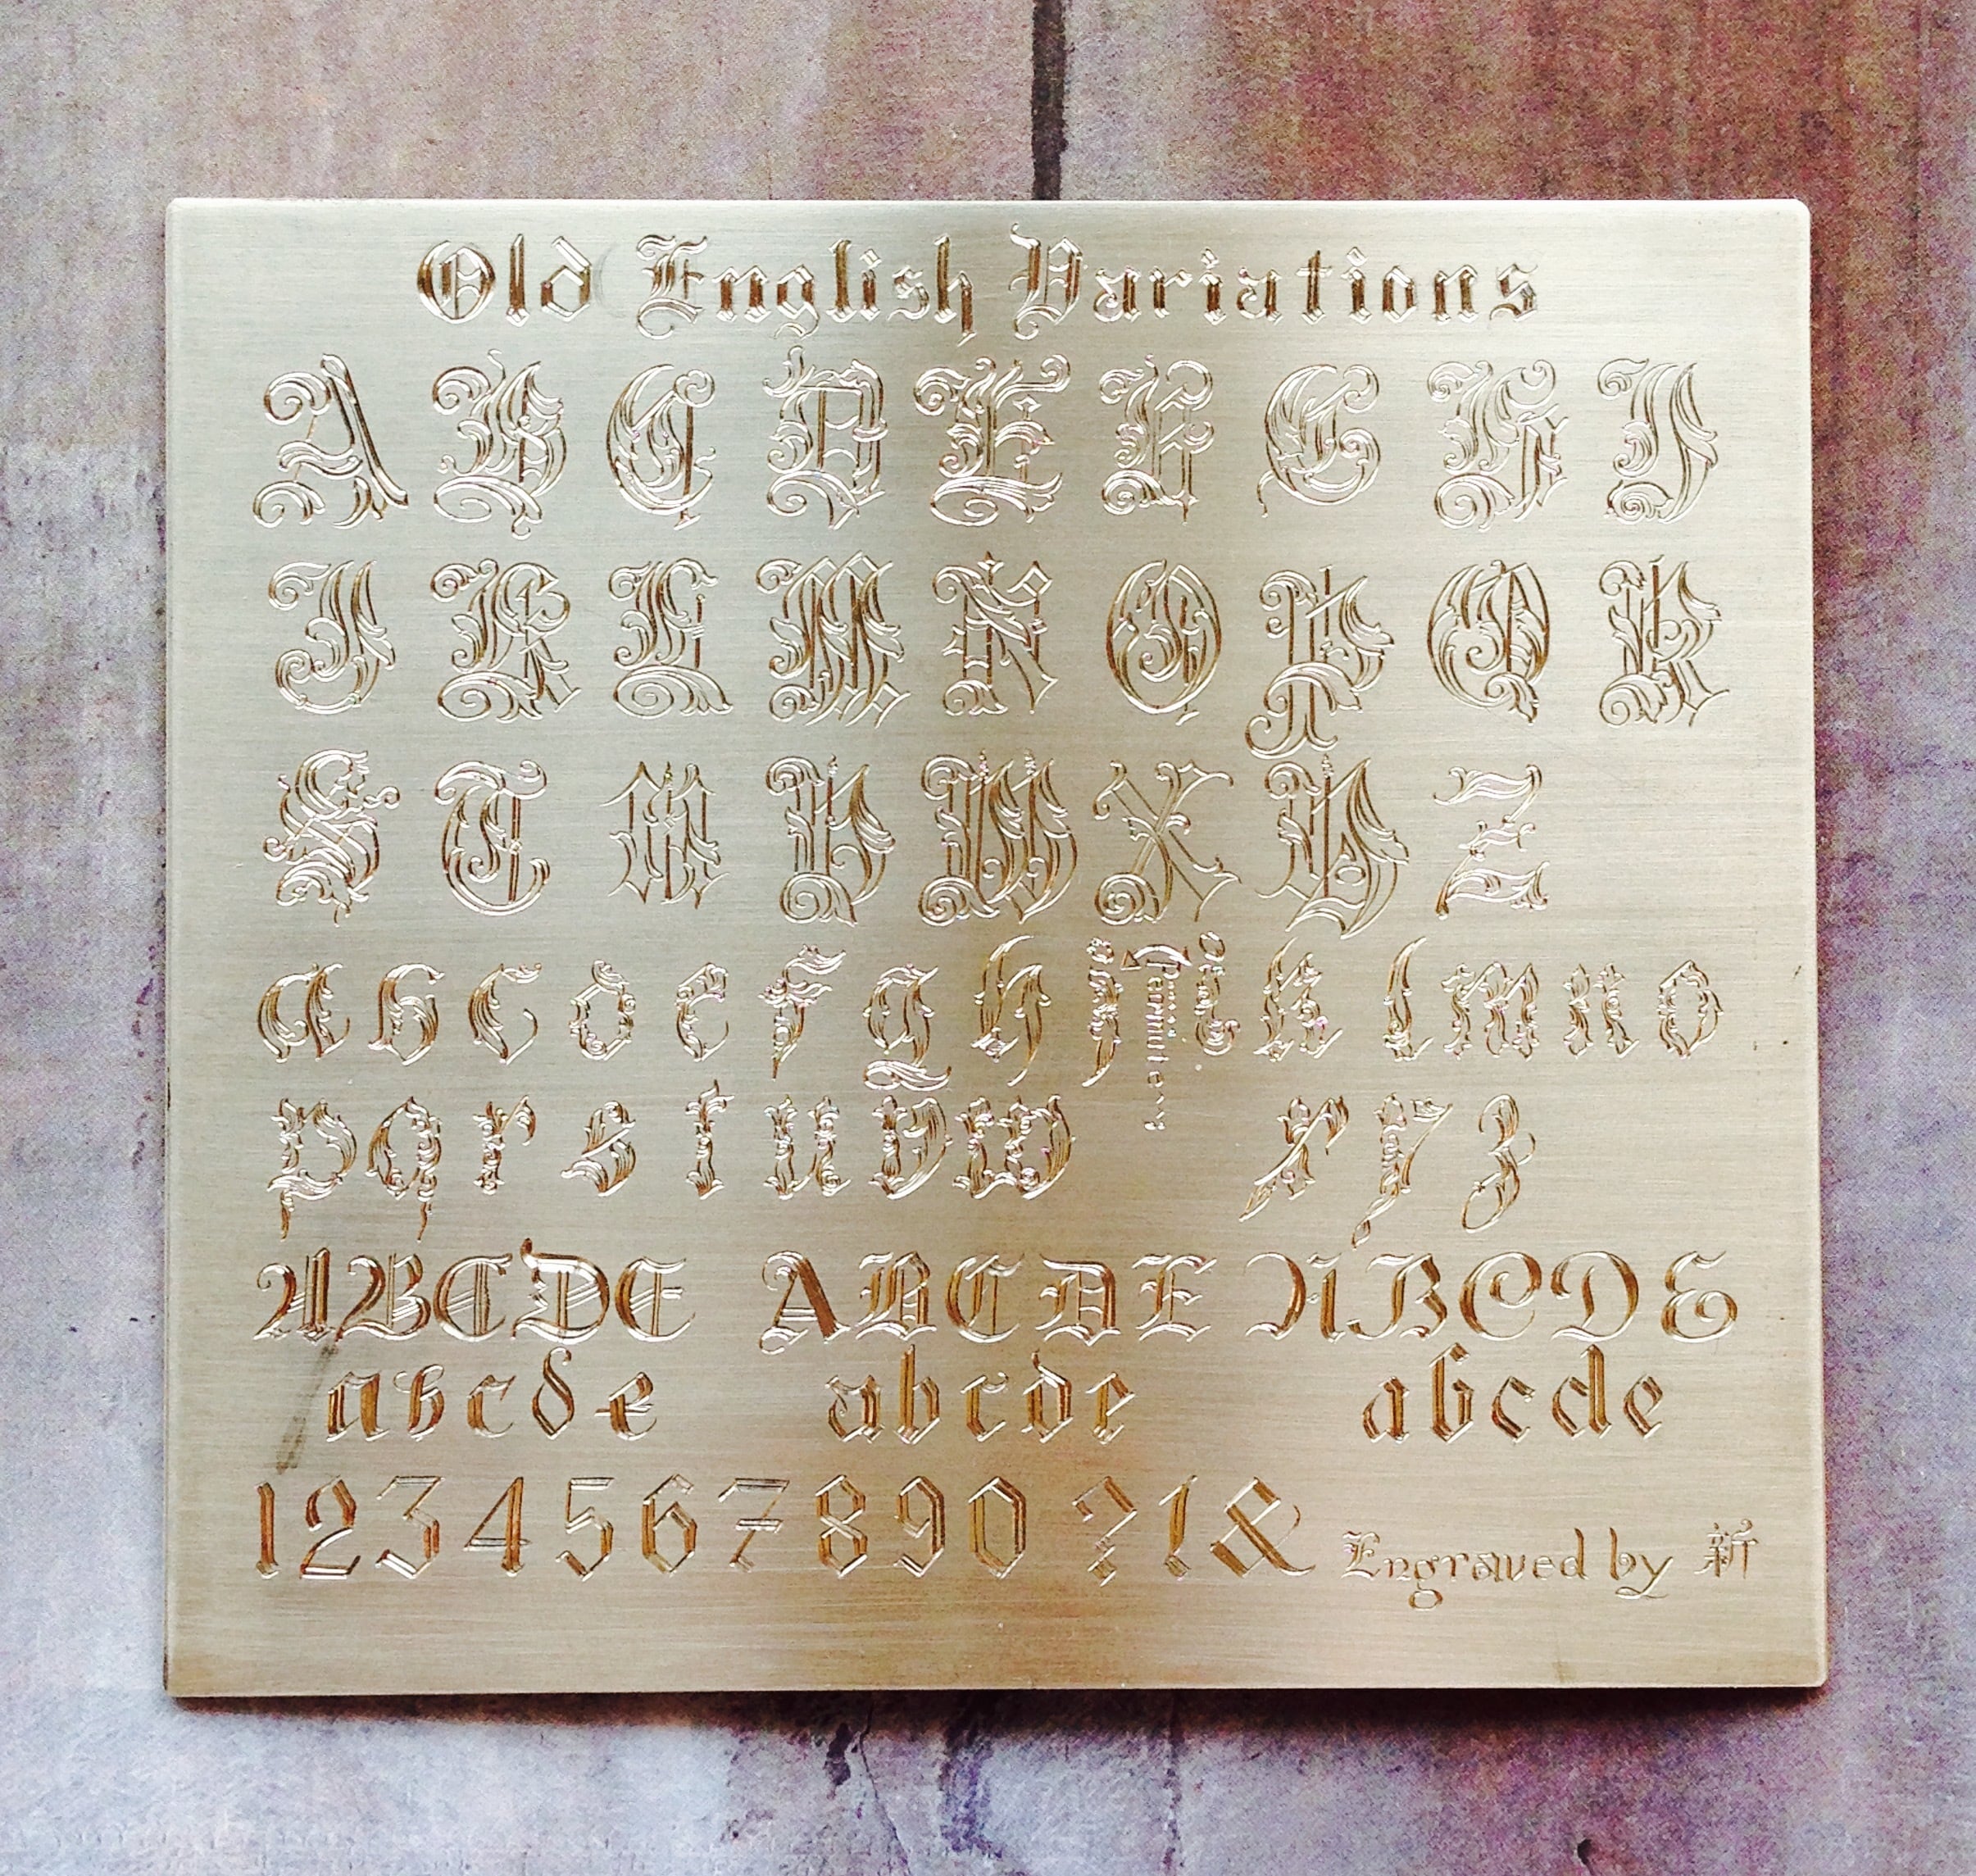 Old English Variations
A B C D E F G H I
J K L M N O P Q R
S T U V W X Y Z
a b c d e f g h i j k l m n o
p q r s t u v w x y z
ABCDE ABCDE ABCDE
abcde abcde abcde
1234567890 ?!& Engraved by 新